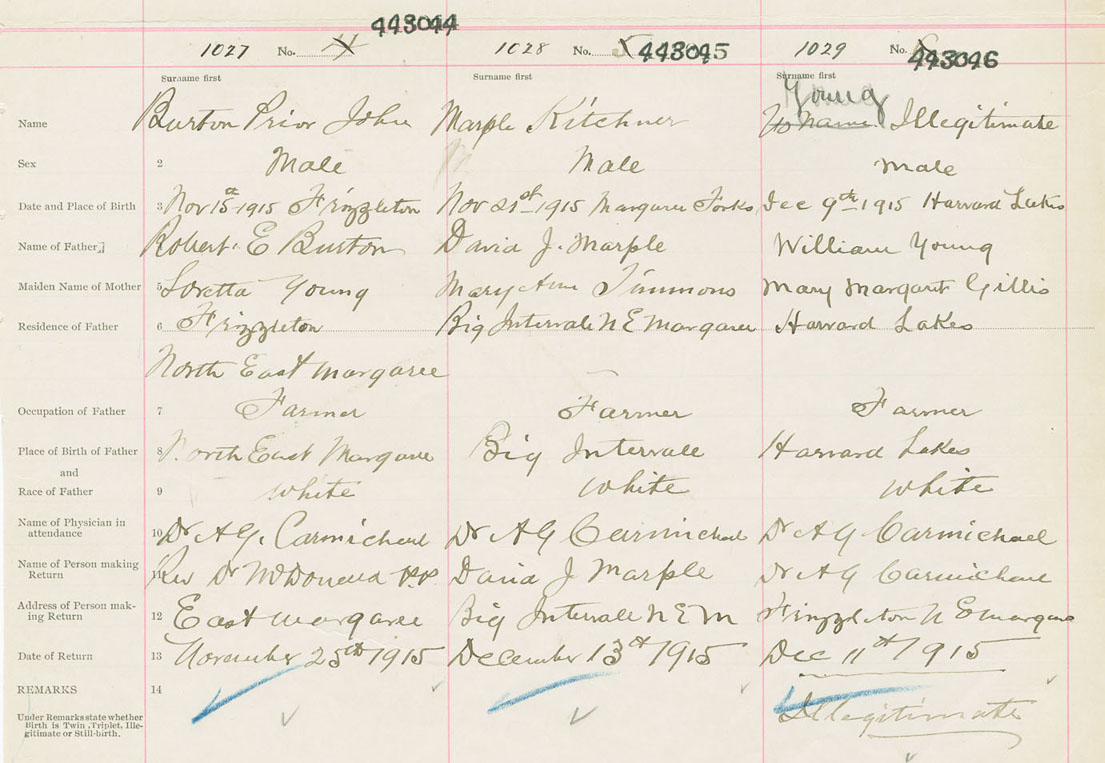 443044
1027 No. 4 1028 No. 5 443045 1029 No. 443046
Surname first Surname first Surname first
Young
Name Burton Prior John Marple Kitchner No name Illegitimate
Sex 2 Male Male Male
Date and Place of Birth 3 Nov 15th 1915 Frizzleton Nov 21st 1915 Margaree Forks Dec 9th 1915 Harvard Lakes
Name of Father Robert E Burton David J. Marple William Young
Maiden Name of Mother 5 Loretta Young Mary Ann Timmons Mary Margaret Gillis
Residence of Father 6 Frizzleton Big Intervale N E Margaree Harvard Lakes
North East Margaree
Occupation of Father 7 Farmer Farmer Farmer
Place of Birth of Father 8 North East Margaree Big Intervale Harvard Lakes
and
Race of Father 9 White White White
Name of Physician in
attendance 10 Dr A G. Carmichael Dr A G Carmichael Dr A G Carmichael
Name of Person making
Return 11 Rev Dr McDonald P.P. David J Marple Dr A G Carmichael
Address of Person mak-
ing Return 12 East Margaree Big Intervale N E M Frizzleton N E Margaree
Date of Return 13 November 25th 1915 December 13th 1915 Dec 11th 1915
REMARKS 14
Under Remarks state whether
Birth is Twin, Triplet, Ille-
gitimate or Still-birth.
Illegitimate